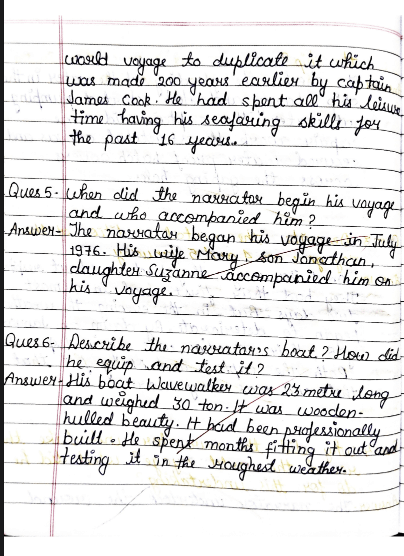 world voyage to duplicate it which
was made 200 years earlier by captain
James Cook. He had spent all his leisure
time having his seafaring skills for
the past 16 years.
Ques 5- When did the narrator begin his voyage
and who accompanied him?
Answer- The narrator began his voyage in July
1976. His wife Mary, son Jonathan,
daughter Suzanne accompanied him on
his voyage.
Ques 6- Describe the narrator's boat? How did
he equip and test it?
Answer- His boat Wavewalker was 23 metre long
and weighed 30 ton. It was wooden-
hulled beauty. It had been professionally
built. He spent months fitting it out and
testing it in the roughest weather.